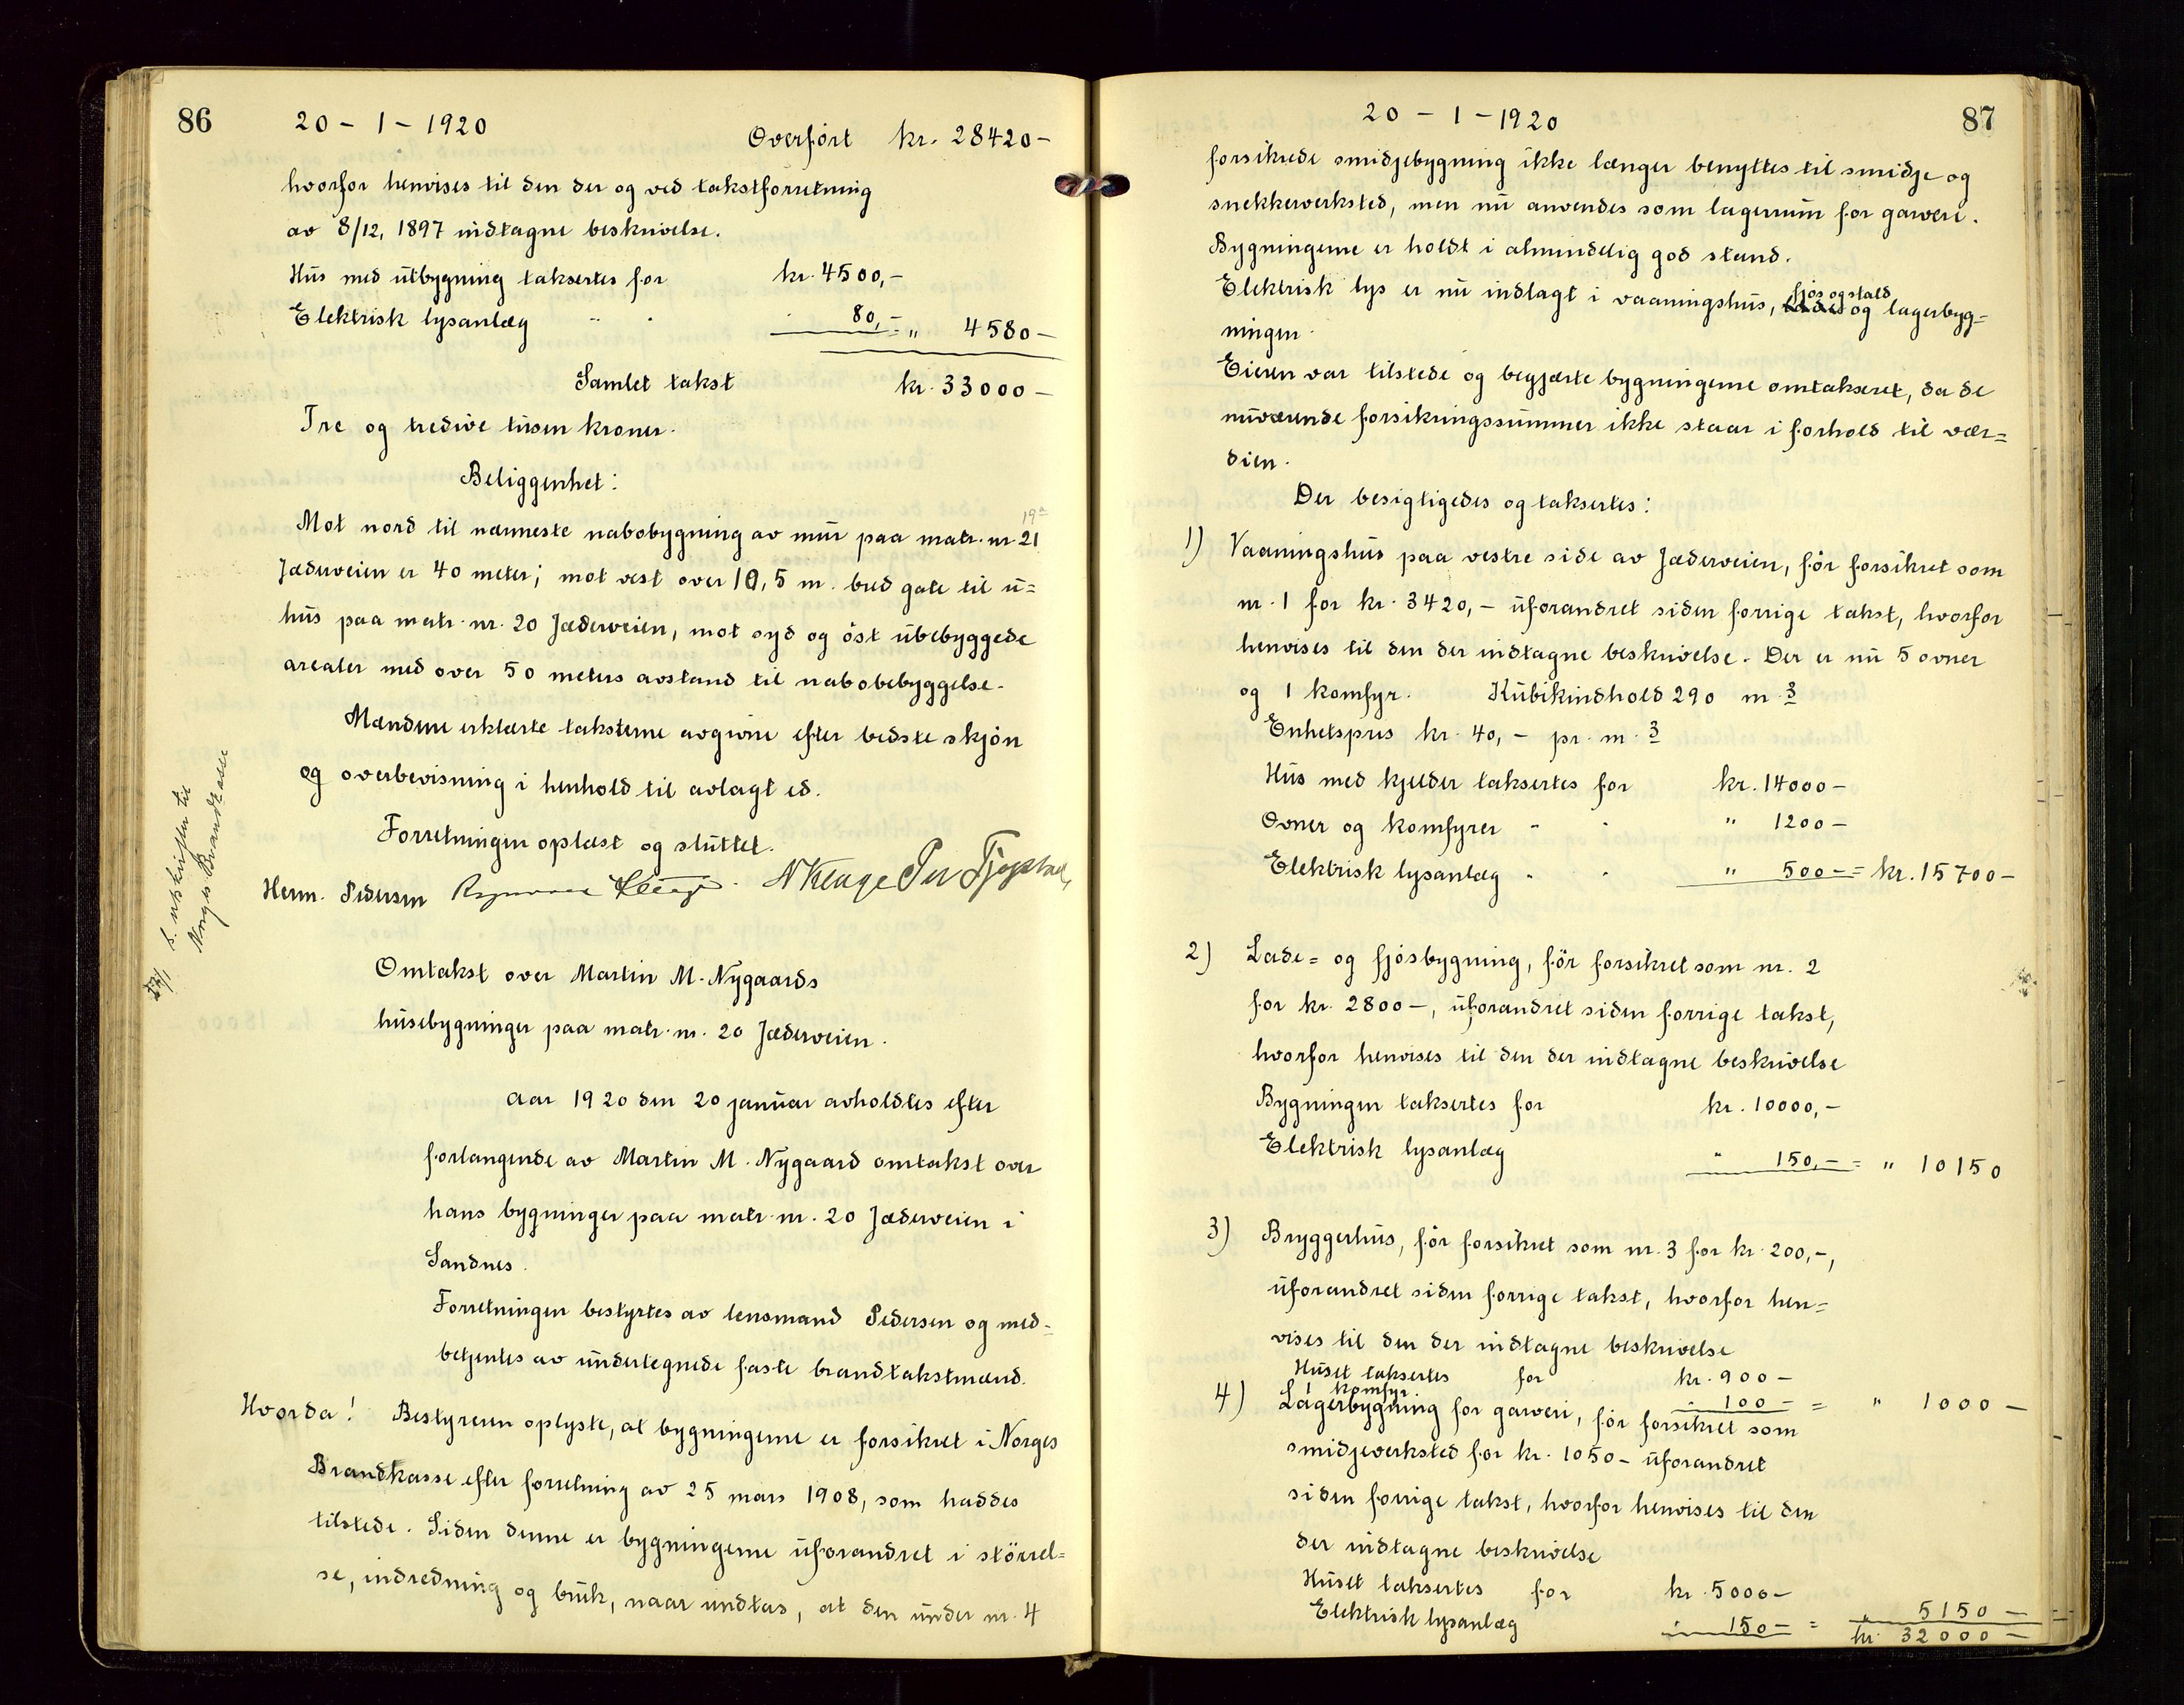 86
20 - 1 - 1920
Overført kr. 28420 -
hvorfor henvises til den der og ved takstforretning
av 8/12, 1897 indtagne beskrivelse.
Hus med utbygning taksertes for kr. 4500,-
Elektrisk lysanlæg " " " 80,- = " 4580 -
Samlet takst kr. 33000 -
Tre og tredive tusen kroner.
Beliggenhet:
19a
Mot nord til nærmeste nabobygning av mur paa matr. nr 21
Jæderveien er 40 meter; mot vest over 10,5 m. bred gate til u=
hus paa matr. nr. 20 Jæderveien, mot syd og øst ubebyggede
arealer med over 50 meters avstand til nabobebyggelse.
Mændene erklærte taksterne avgivne efter bedste skjøn
og overbevisning i henhold til avlagt ed.
Forretningen oplæst og sluttet.
Herm. Pedersen N Kluge Per
utskrifter til
Norges Brandkasse
Omtakst over Martin M. Nygaards
husebygninger paa matr. nr. 20 Jæderveien.
Aar 1920 den 20 januar avholdtes efter
forlangende av Martin M. Nygaard omtakst over
hans bygninger paa matr. nr. 20 Jæderveien i
Sandnes.
Forretningen bestyrtes av lensmand Pedersen og med=
betjentes av undertegnede faste brandtakstmænd.
Hvorda! Bestyreren oplyste, at bygningerne er forsikret i Norges
Brandkasse efter forretning av 25 mars 1908, som haddes
tilstede. Siden denne er bygningerne uforandret i størrel=
se, indredning og bruk, naar undtas, at den under nr. 4
87
20 - 1 - 1920
forsikrede smidjebygning ikke længer benyttes til smidje og
snekkerverksted, men nu anvendes som lagerrum for garveri.
Bygningerne er holdt i almindelig god stand.
fjøs og stald
Elektrisk lys er nu indlagt i vaaningshus, og lagerbyg=
ningen.
Eieren var tilstede og begjærte bygningerne omtakseret, da de
nuværende forsikringssummer ikke staar i forhold til vær=
dien.
Der besigtigedes og taksertes:
1) Vaaningshus paa vestre side av Jæderveien, før forsikret som
nr. 1 for kr. 3420,- uforandret siden forrige takst, hvorfor
henvises til den der indtagne beskrivelse. Der er nu 5 ovner
og 1 komfyr. Kubikindhold 290 m.3
Enhetspris kr. 40,- pr. m.3
Hus med kjelder taksertes for kr. 14000 -
Ovner og komfyrer " " " 1200 -
Elektrisk lysanlæg " " " 500 - = kr. 15700 -
2) Lade= og fjøsbygning, før forsikret som nr. 2
for kr. 2800 -, uforandret siden forrige takst,
hvorfor henvises til den der indtagne beskrivelse
Bygningen taksertes for kr. 10000,-
Elektrisk lysanlæg " 150,- = " 10150
3) Bryggerhus, før forsikret som nr. 3 for kr. 200,-,
uforandret siden forrige takst, hvorfor hen=
vises til den der indtagne beskrivelse
Huset taksertes for kr. 900 -
1 komfyr. " 100 - = " 1000 -
4) Lagerbygning for garveri, før forsikret som
smidjeverksted for kr. 1050 - uforandret
siden forrige takst, hvorfor henvises til den
der indtagne beskrivelse
Huset taksertes for kr. 5000 -
Elektrisk lysanlæg " 150 - = " 5150 -
kr. 32000 -